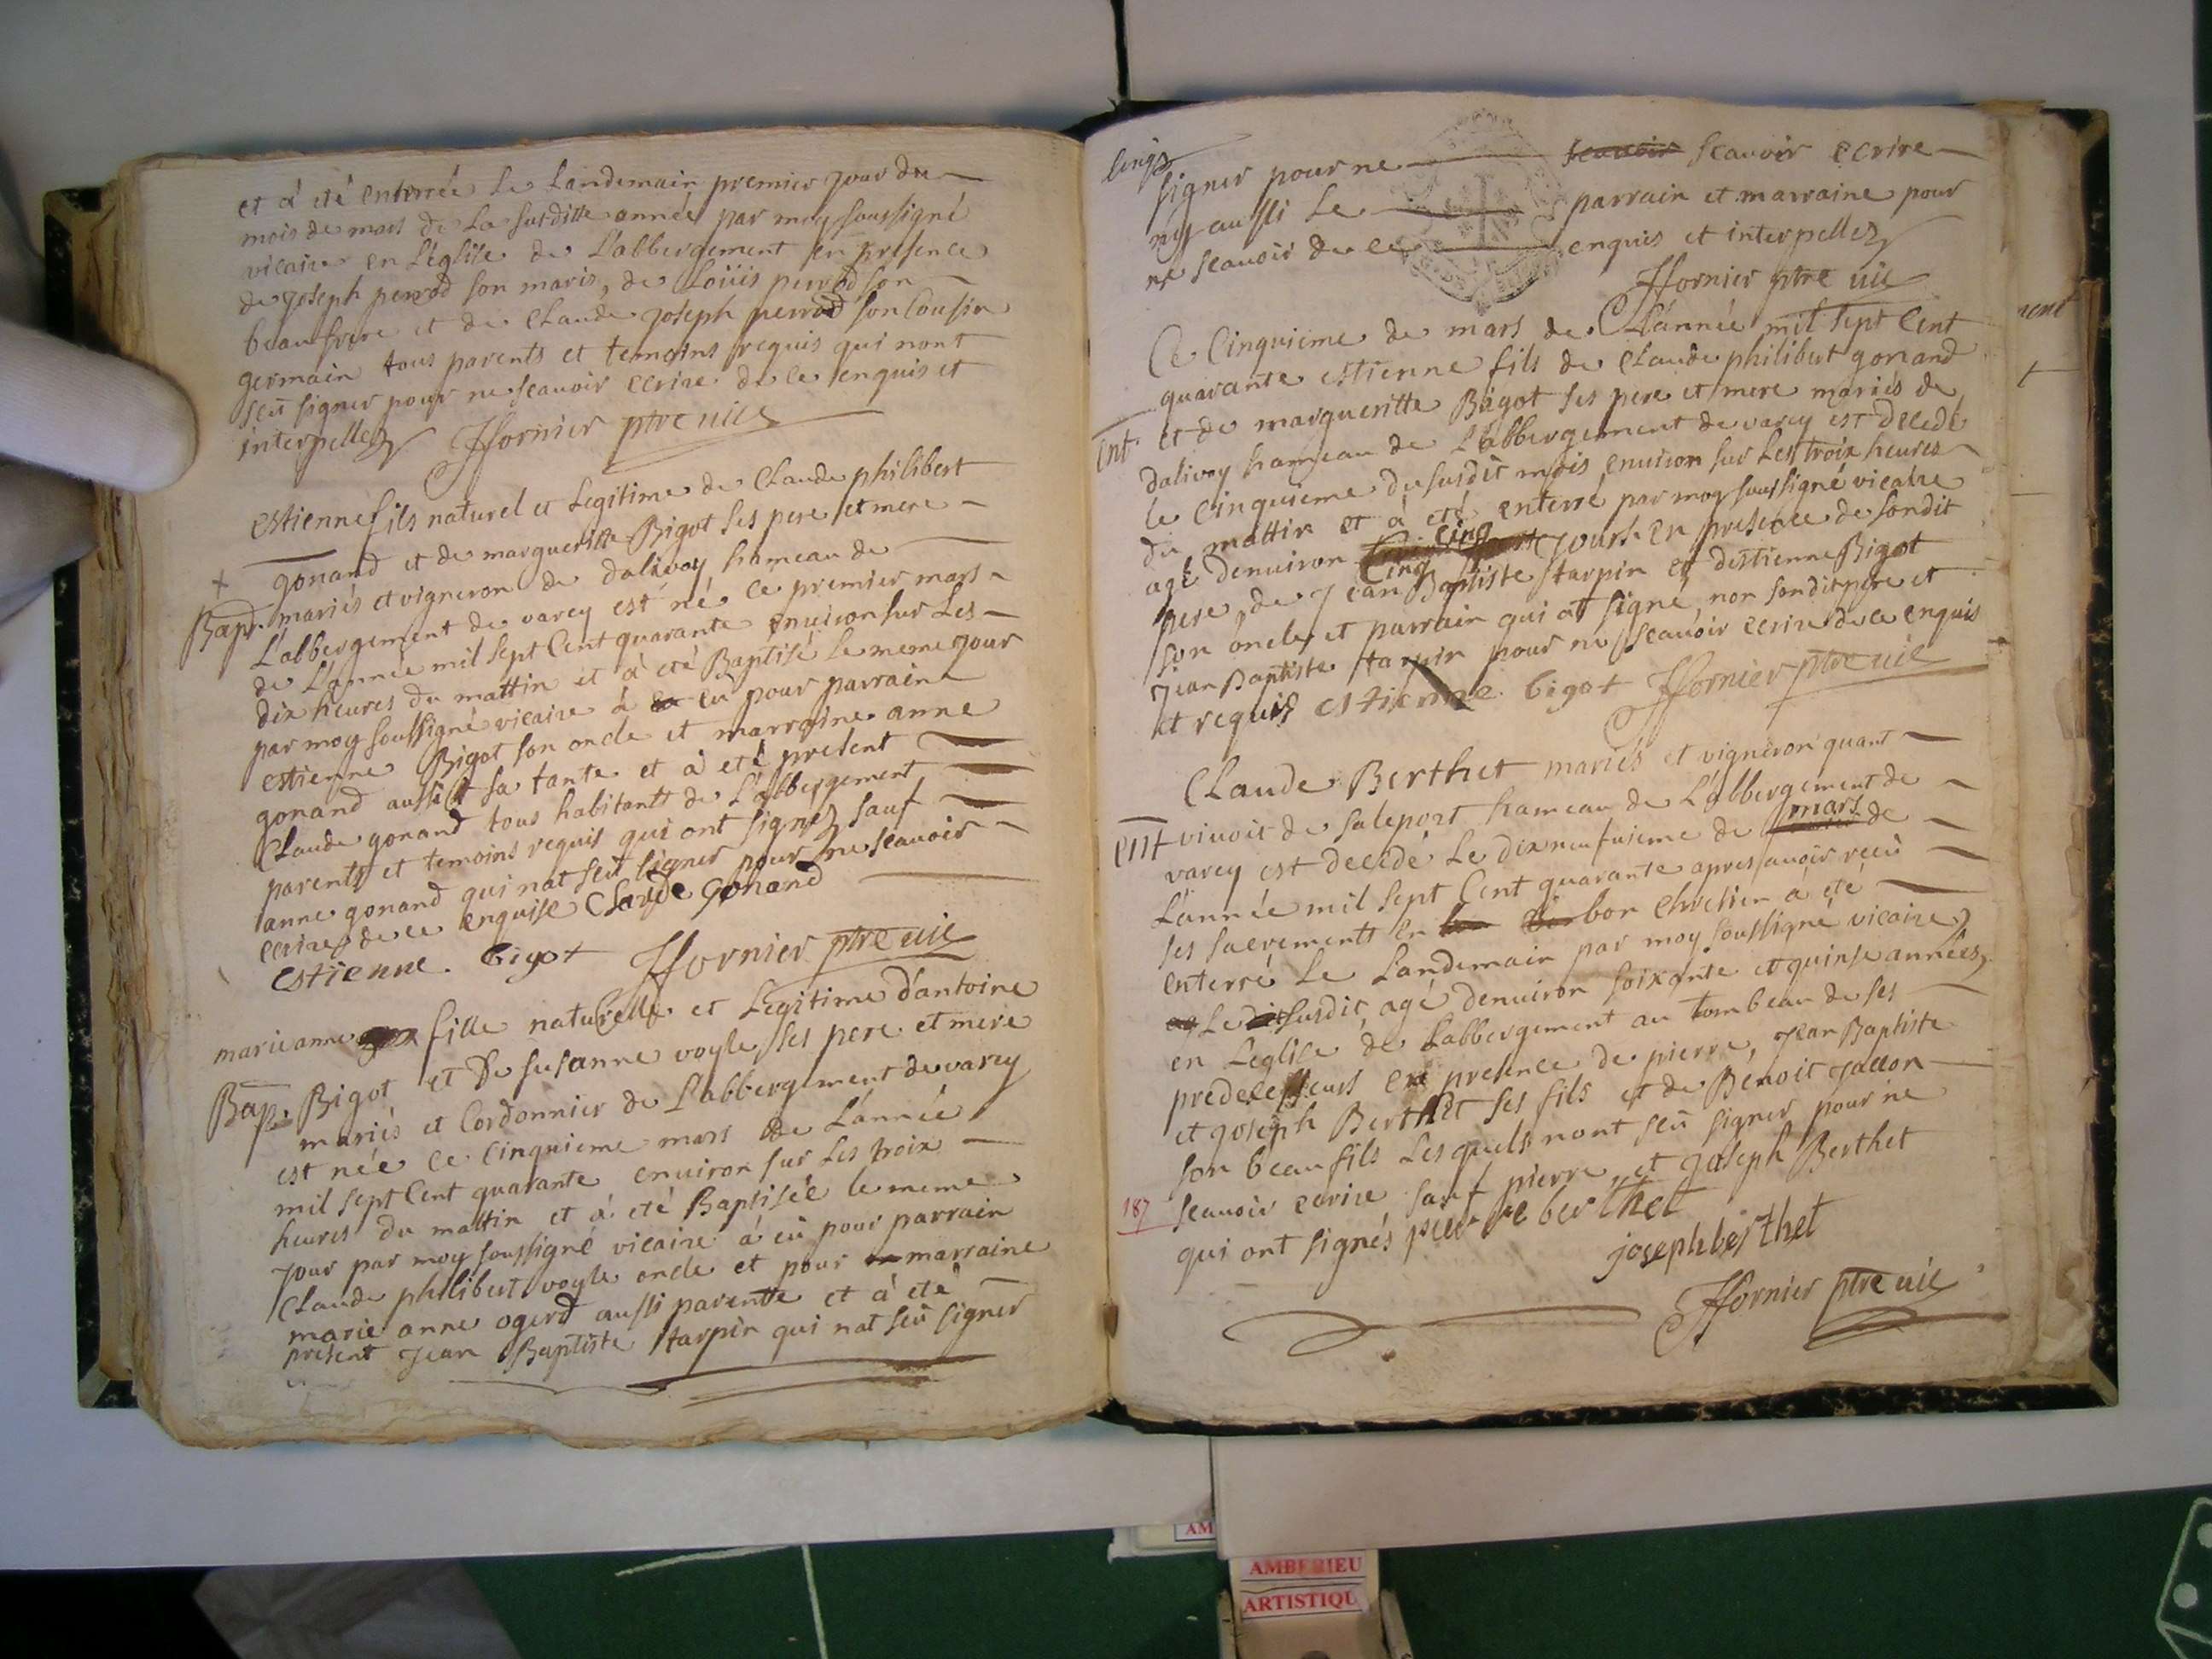 et à eté enterrée le landemain premier jour du
mois de mars de la susditte année par moy soussigné
vicaire en l'église de l'abbergement en presence
de joseph perrod son maris, de loüis perrod son
beaufrere et de claude joseph perrod son cousin
germain tous parents et temoins requis qui nont
sçu signer pour ne scavoir ecrire de ce enquis et
interpellez ffornier ptre vic
estienne fils naturel et legitime de claude philibert
gonand et de margueritte Bigot ses pere et mere
+
Bapt. mariés et vigneron de dalivoy hameau de
l'abbergement de varey est né ce premier mars
de l'année mil sept cent quarante environ sur les
dix heures du mattin et à eté Baptisé le meme jour
par moy soussigné vicaire à eu pour parrain
estienne Bigot son oncle et marraine anne
gonand aussi sa tante et à eté present
claude gonand tous habitants de l'abbergement
parents et temoins requis qui ont signéz sauf
anne gonand qui nat seu signer pour ne scavoir
ecrire de ce enquise Claude gonand
estienne. bigot ffornier ptre vic
marieanne fille naturelle et legitime d'antoine
Bap. Bigot et De susanne voyle ses pere et mere
mariés et cordonnier de l'abbergement de varey
est née ce cinquieme mars de l'année
mil sept cent quarante environ sur les troix
heures du mattin et à eté Baptisée le meme
jour par moy soussigné vicaire à eu pour parrain
claude philibert voyle oncle et pour marraine
marie anne ogerd aussi parentte et à eté
present jean Baptiste tarpin qui nat seu signer
signer pour ne scavoir scavoir ecrire
ny aussi le parrain et marraine pour
ne scavoir de ce enquis et interpellez
ffornier ptre vic
Ce Cinquieme de mars de L'année mil sept cent
quarante estienne fils de claude philibert gonand
ent. et de margueritte Bigot ses pere et mere mariés de
dalivoy hameau de l'abbergement de varey est decedé
le cinquieme du susdit mois environ sur les troix heures
du mattin et à eté enterré par moy soussigné vicaire
agé denviron cinq jours en presence de sondit
pere, de jean Baptiste tarpin et destienne Bigot
son oncle et parrain qui at signé, non sondit pere et
jean Baptiste tarpin pour ne scavoir ecrire de ce enquis
et requis estienne bigot ffornier ptre vic
Claude Berthet mariés et vigneron quant
ent vivoit de saleport hameau de L'abbergement de
varey est decedé le dixneufuieme de mars de
L'année mil sept cent quarante apres avoir receü
ses sacrements en bon chretien à eté
enterré le landemain par moy soussigné vicaire,
Le susdit agé denviron soixante et quinse années,
en leglise de Labbergement au tombeau de ses
predecesseurs en presence de pierre, jean Baptiste
et joseph Berthet ses fils et de Benoit jacon
son beau fils lesquels nont seu signer pour ne
187 scavoir ecrire, sauf pierre, et joseph Berthet
qui ont signés pierre berthet
joseph berthet
ffornier ptre vic
AMBERIEU
ARTISTIQU